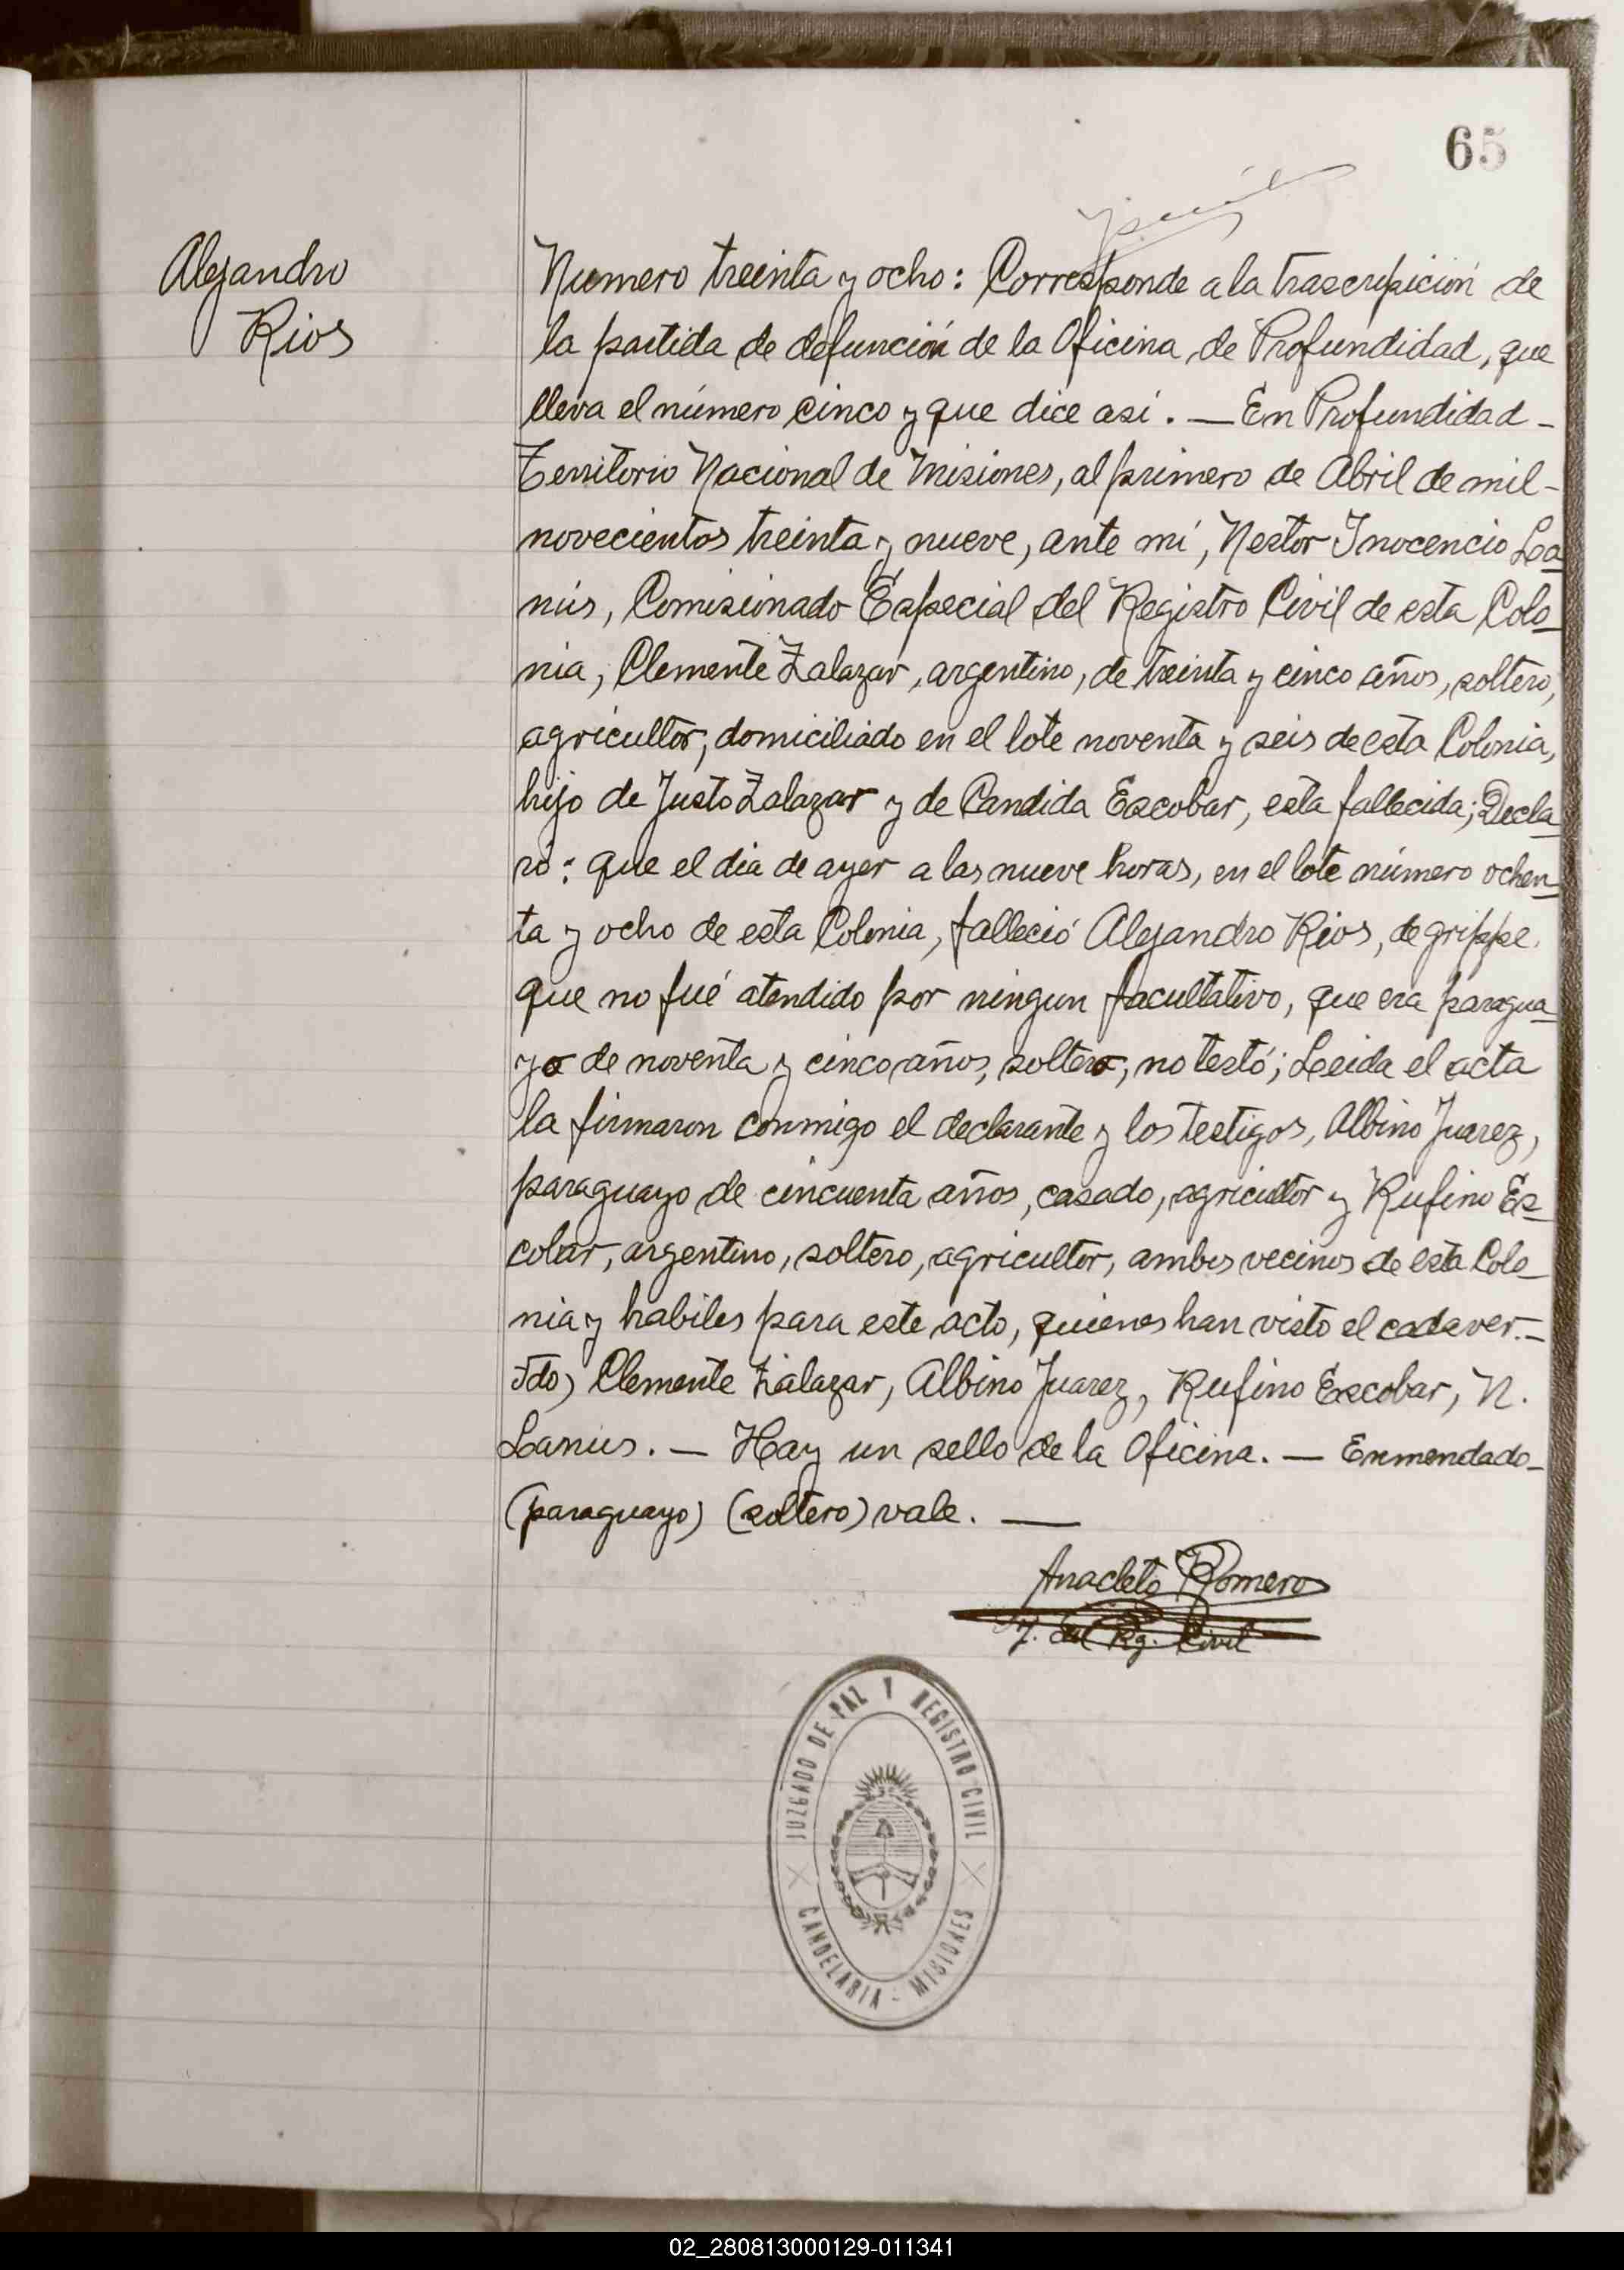 65
Alejandro
Rios
Numero treinta y ocho: Corresponde a la trascripición de
la partida de defunción de la Oficina de Profundidad, que
lleva el número cinco y que dice asi. — En Profundidad -
Territorio Nacional de Misiones, al primero de Abril de mil -
novecientos treinta y nueve, ante mi, Nestor Inocencio La
nús, Comisionado Especial del Registro Civil de esta Colo_
nia, Clemente Zalazar, argentino, de treinta y cinco años, soltero,
agricultor, domiciliado en el lote noventa y seis de esta Colonia,
hijo de Justo Zalazar y de Candida Escobar, esta fallecida; Decla_
ró: que el dia de ayer a las nueve horas, en el lote número ochen_
ta y ocho de esta Colonia, falleció Alejandro Rios, de grippe.
que no fué atendido por ningun facultativo, que era paragua_
yo de noventa y cinco años, soltero, no testó; Leida el acta
la firmaron conmigo el declarante y los testigos, Albino Juarez,
paraguayo de cincuenta años, casado, agricultor y Rufino Es_
cobar, argentino, soltero, agricultor, ambos vecinos de esta Colo_
nia y habiles para este acto, quienes han visto el cadaver. -
Fdo) Clemente Zalazar, Albino Juarez, Rufino Escobar, N.
Lanus. — Hay un sello de la Oficina. — Enmendado -
(paraguayo) (soltero) vale. —
Anacleto Romero
J. del Rg. Civil
JUZGADO DE PAZ Y REGISTRO CIVIL
CANDELARIA - MISIONES
02_280813000129-011341